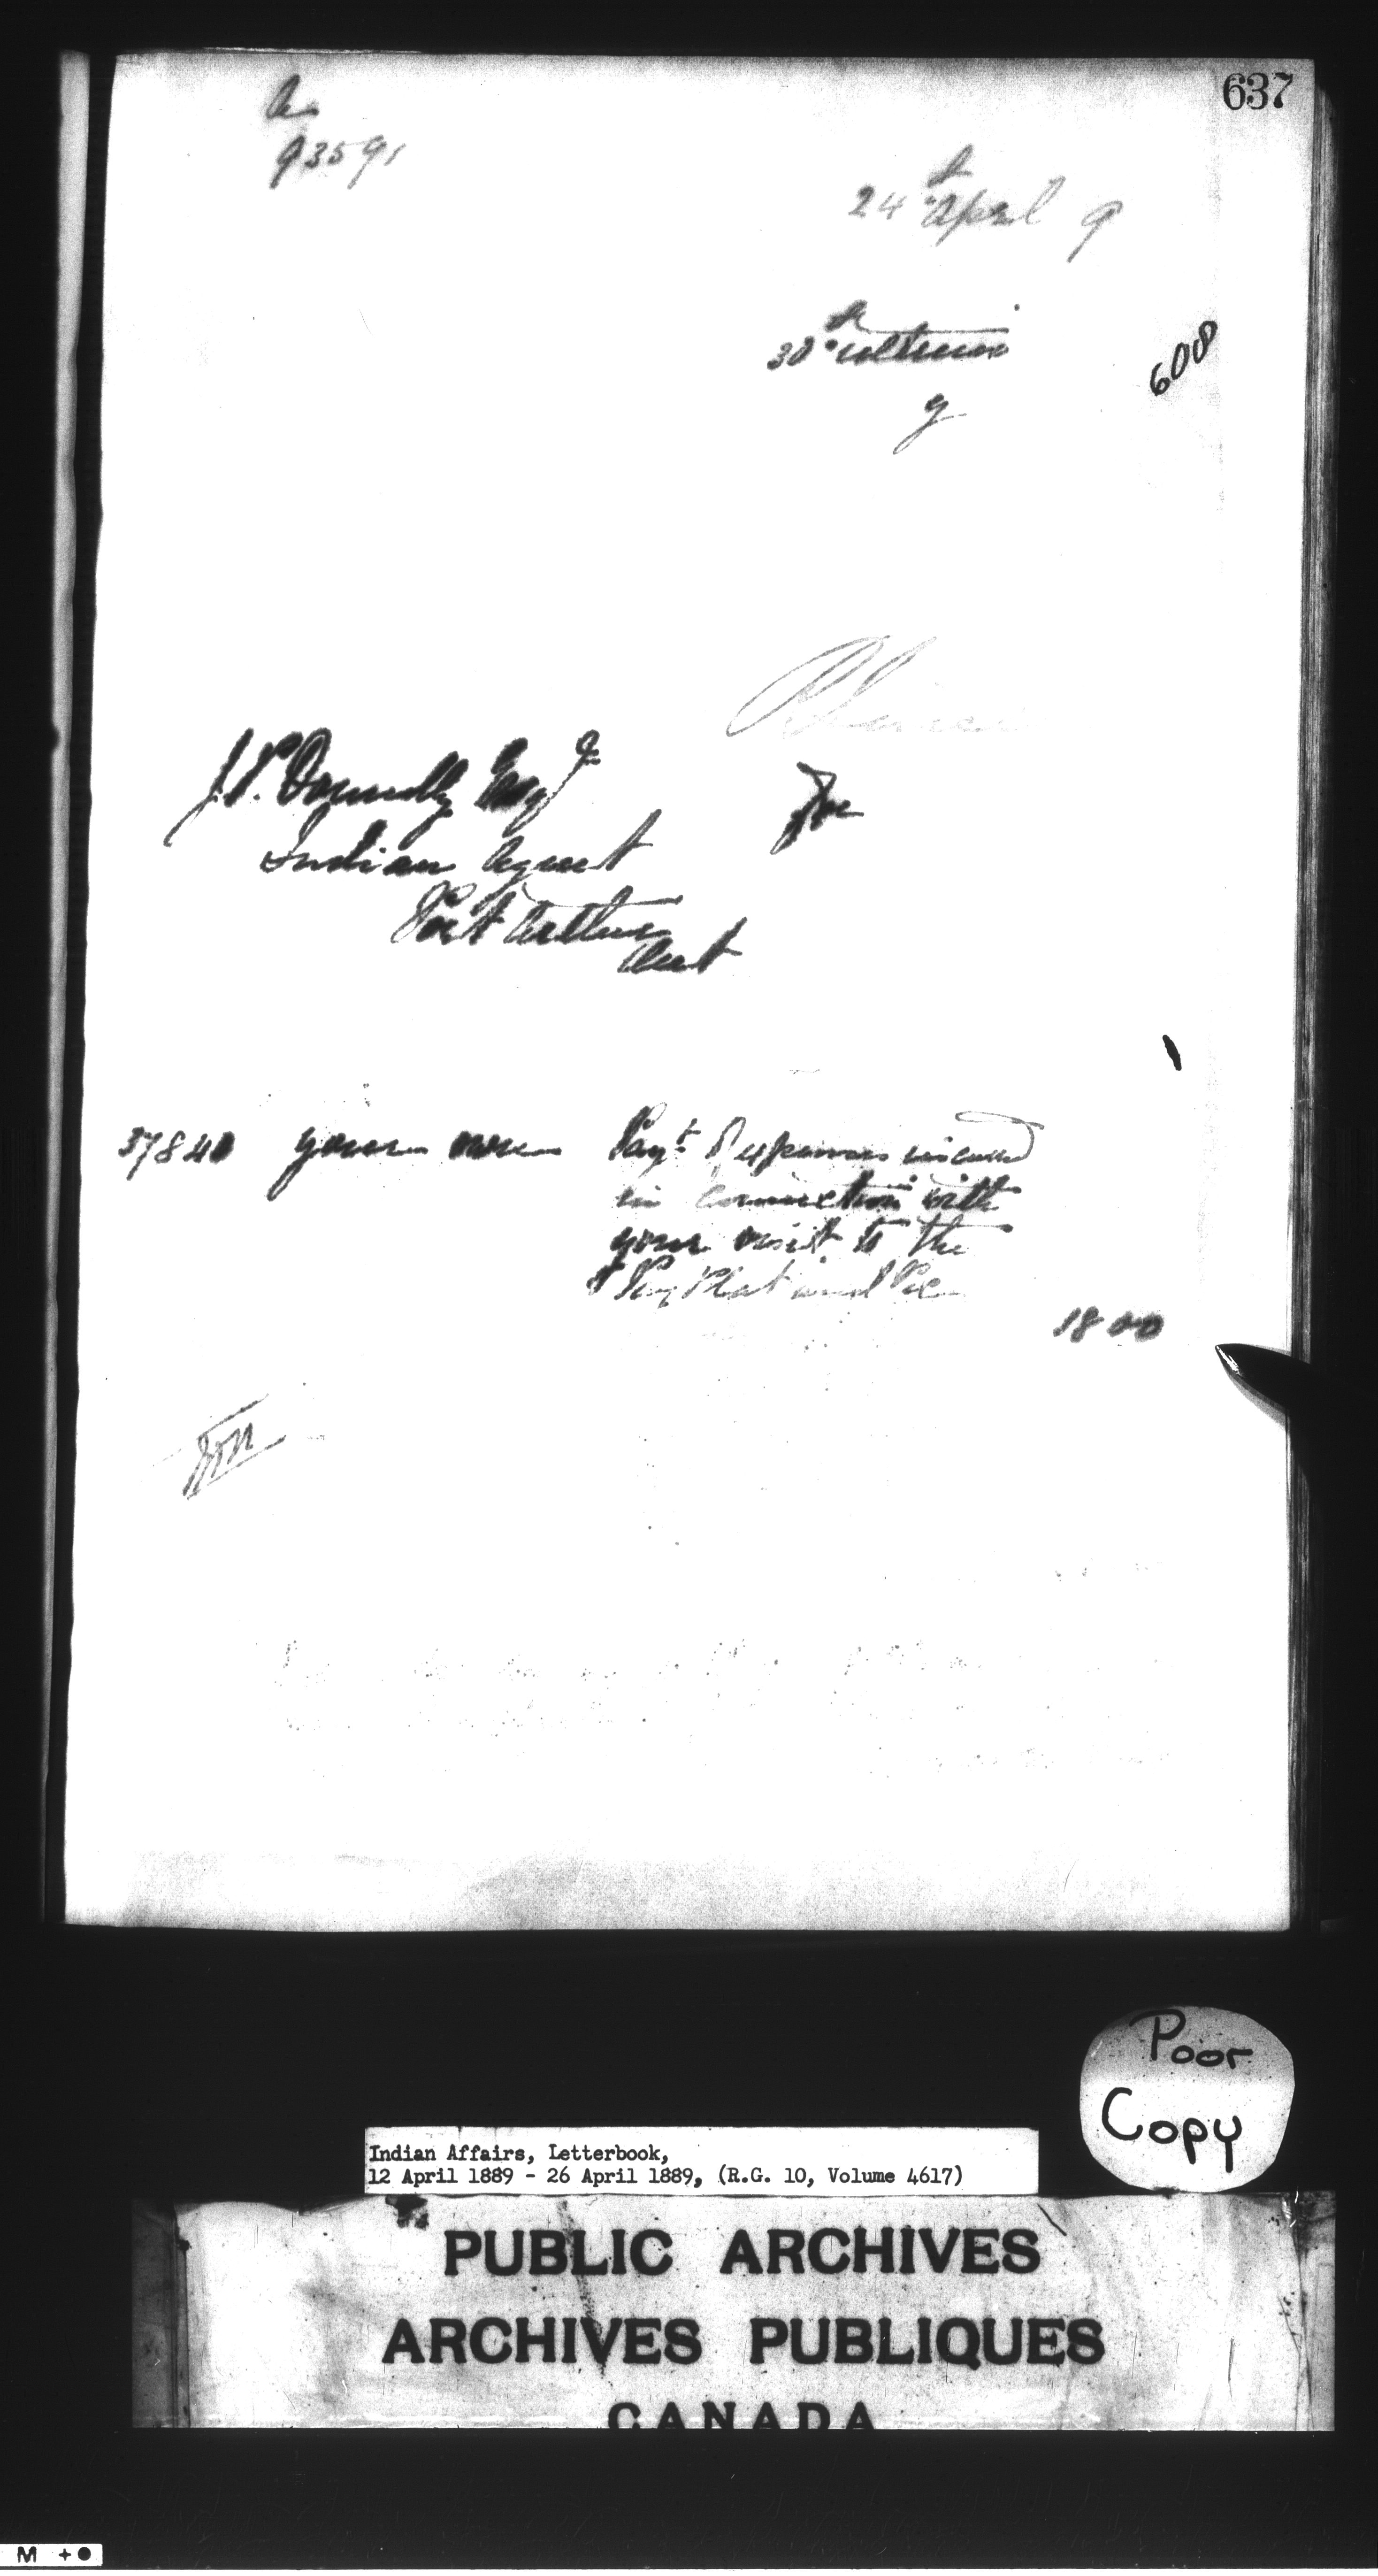 637
Ac
93591
24th April 9
30th ultimo
608
9
J.P. Donnelly Esqre
Indian Agent
Port Arthur
Ont
37840 your own Payt of expenses incurred
in connection with
your visit to the
Pay Plat and Pic
18 00
Poor
Copy
Indian Affairs, Letterbook,
12 April 1889 - 26 April 1889, (R.G. 10, Volume 4617)
PUBLIC ARCHIVES
ARCHIVES PUBLIQUES
CANADA
M +